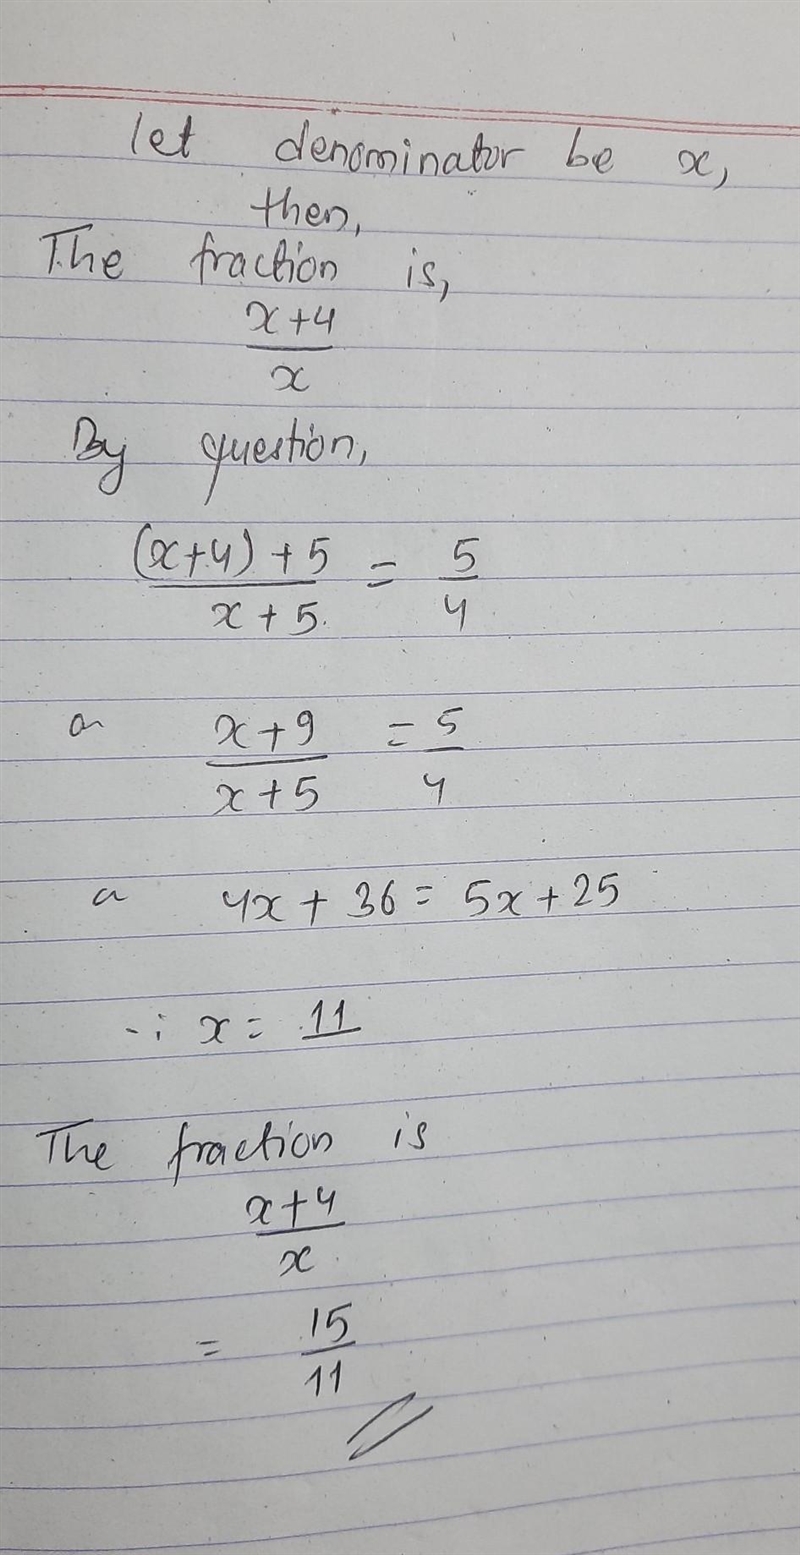 let denominator be x,
then,
The fraction is,
x+4
x
By question,
(x+4)+5 = 5
x+5. 4
or x+9 = 5
x+5 4
or 4x + 36 = 5x+25
∴ x = 11
The fraction is
x+4
x
= 15
11